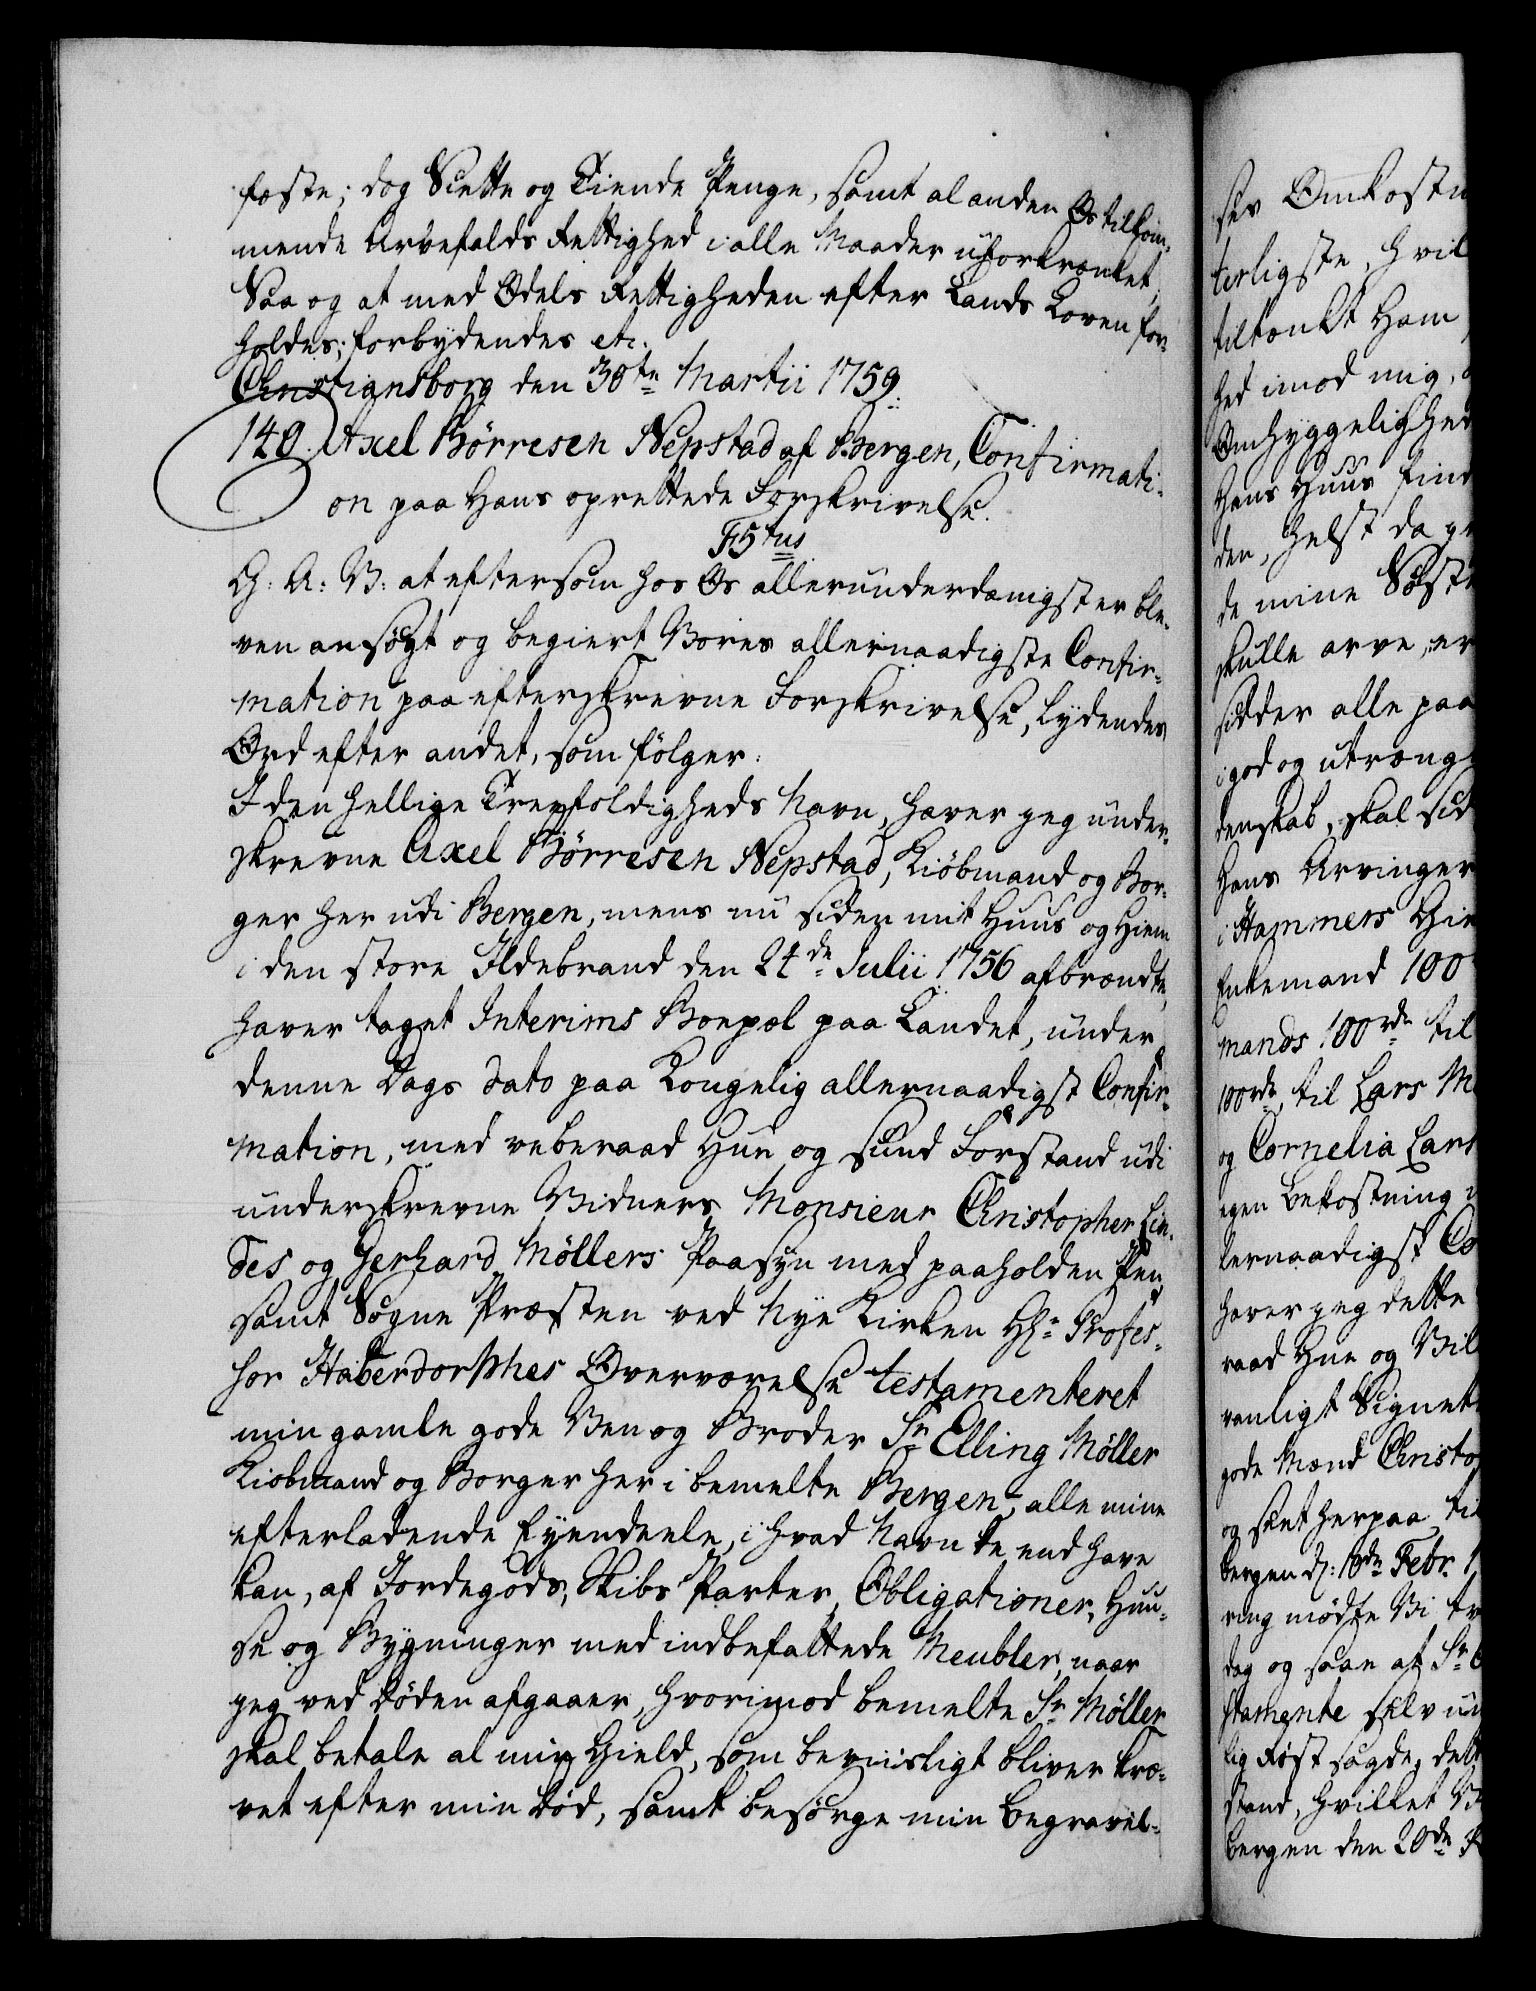 fæste; dog Siette og Tiende Penge, samt al anden Os tilkom-
mende Arvefalds Rettighed i alle Maader uforkrænket,
Saa og at med Odels Rettigheden efter Lands Loven for-
holdes; forbydendes etc.
Christiansborg den 30te Martii 1759.
140. Axel Börresen Nepstad af Bergen, Confirmati-
on paa Hans oprettede Forskrivelse.
F5tus
G: A: V: at eftersom hos Os allerunderdanigst er ble-
ven ansögt og begiert Vores allernaadigste Confir-
mation paa efterskrevne Forskrivelse, lydendes
Ord efter andet, som fölger:
I den hellige Treefoldigheds Navn, haver jeg under-
skrevne Axel Börresen Nepstad, Kiöbmand og Bor-
ger her udi Bergen, mens nu siden mit Huus og Hiem
i den store Ildebrand den 24de Julii 1756 afbrændte,
haver taget Interims Boepæl paa Landet, under
denne Dags Dato paa Kongelig allernaadigst Confir-
mation, med velberaad Hue og sund Forstand udi
underskrevne Vidners Monsieur Christopher Lin-
des og Gerhard Möllers Paasyn med paaholden Pen
samt Sogne Præsten ved Nye Kirken Hr. Profes-
sor Haberdorphes Overværelse testamenteret
min gamle gode Ven og Broder Sr. Elling Möller
Kiöbmand og Borger her i bemelte Bergen, alle mine
efterladende Eyendeele, i hvad Navn de end have
kan, af Jordegods, Skibs Parter, Obligationer, Huu-
se og Bygninger med indbefattede Meubler, naar
jeg ved Döden afgaaer, hvorimod bemelte Sr Möller
skal betale al min Gield, som beviisligt bliver kræ-
vet efter min Död, samt besörge min Begravel-
ses Omkostn
terligste, hvil
tiltænkt Ham
hed imod mig,
Omhyggelighed
Hans Huus find
den, helst da
de mine Söst
skulle arve, er
sidder alle paa
i god og utræng
denskab, skal sid
Hans Arvinger
i Hammers Gie
Enkemand 100
mands 100rdr til
100rdr, til Lars M
og Cornelia Lars
egen Bekostning
lernaadigst Co
haver jeg dette
raad Hue og Vil
vanligt Signet
gode Mænd Christo
og sent herpaa, til
Bergen d: 10de Febr. 1
ring mödte Vi
dag og saae af Sr.
stamente selv un
lig Röst sagde, det
stand, hvilket Vi
Bergen den 20de